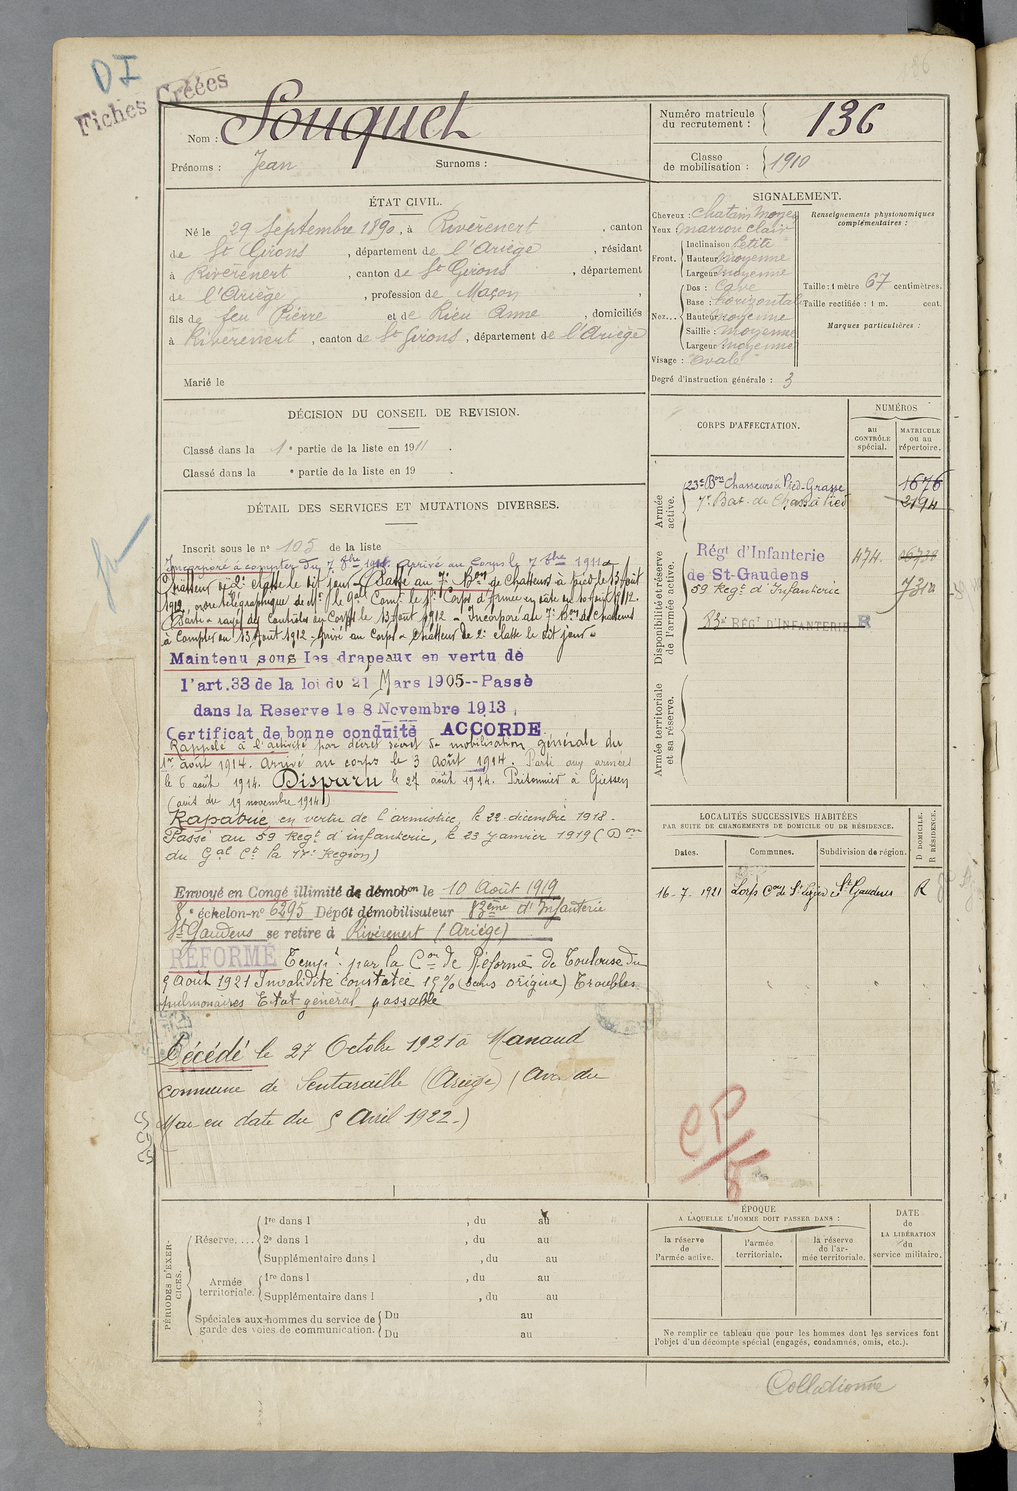 DI
Fiches Créées
Nom : Souquet
Prénoms : Jean Surnoms :
Numéro matricule du recrutement : 136
Classe de mobilisation : 1910
ÉTAT CIVIL.
Né le 29 Septembre 1890, à Rivèrenert, canton
de St Girons, département de l'Ariège, résidant
à Rivèrenert, canton de St Girons, département
de l'Ariège, profession de Maçon,
fils de feu Pierre et de Rieu Anne, domiciliés
à Rivèrenert, canton de St Girons, département de l'Ariège
Marié le
SIGNALEMENT.
Cheveux : chatain moyen
Yeux marron clair
Front. Inclinaison petite
Hauteur moyenne
Largeur moyenne
Nez... Dos : cave
Base : horizontale
Hauteur moyenne
Saillie : moyenne
Largeur : moyenne
Visage : ovale
Renseignements physionomiques complémentaires :
Taille : 1 mètre 67 centimètres.
Taille rectifiée : 1 m. cent.
Marques particulières :
Degré d'instruction générale : 3
DÉCISION DU CONSEIL DE REVISION.
Classé dans la 1e partie de la liste en 1911.
Classé dans la e partie de la liste en 19 .
DÉTAIL DES SERVICES ET MUTATIONS DIVERSES.
Inscrit sous le no 105 de la liste
Incorporé à compter du 7 8bre 1911. Arrivé au Corps le 7 8bre 1911
Chasseur de 2e classe le dit jour. Passé au 7e Bon de Chasseurs à pied le 13 Août
1912, ordre télégraphique de Mr le Gal Comt le Corps d'Armée en date du 10 Août 1912.
Parti & rayé des Contrôles du Corps le 13 Août 1912 - Incorporé au 7e Bon de Chasseurs
à Compter du 13 Août 1912 - Arrivé au Corps & Chasseur de 2e classe le dit jour.
Maintenu sous les drapeaux en vertu de
l'art.33 de la loi du 21 Mars 1905--Passé
dans la Reserve le 8 Novembre 1913,
Certificat de bonne conduite ACCORDE
Rappelé à l'activité par décret de mobilisation générale du
1er août 1914. Arrivé au corps le 3 Août 1914. Parti aux armées
le 6 août 1914. Disparu le 27 août 1914. Prisonnier à Giessen
(avis du 19 novembre 1914)
Rapatrié en vertu de l'armistice, le 22 décembre 1918.
Passé au 59 Regt d'infanterie, le 23 janvier 1919 (Don
du Gal Ct la 17e Région)
Envoyé en Congé illimité de démobon le 10 Août 1919
8e échelon-no 6295 Dépôt démobilisateur 83ème d'Infanterie
St Gaudens se retire à Rivèrenert (Ariège)
RÉFORMÉ Tempt par la Con de Réforme de Toulouse du
9 Août 1921 Invalidité constatée 15% (sans origine) Troubles
pulmonaires Etat général passable
Décédé le 27 Octobre 1921 à Manaud
commune de Sentaraille (Ariège) (Avis du
Maire en date du 5 Avril 1922.)
CORPS D'AFFECTATION.
NUMÉROS
au CONTRÔLE spécial.
MATRICULE ou au répertoire.
Armée active.
23e Bon Chasseurs à Pied-Grasse 1676
7e Bat. de Chass. à Pied 2194
Disponibilité et réserve de l'armée active.
Régt d'Infanterie 474
de St-Gaudens
59 Regt d'Infanterie
83e RÉGt D'INFANTERIE R
Armée territoriale et sa réserve.
LOCALITÉS SUCCESSIVES HABITÉES
PAR SUITE DE CHANGEMENTS DE DOMICILE OU DE RÉSIDENCE.
Dates. Communes. Subdivision de région. D DOMICILE. R RÉSIDENCE.
16-7-1921 Lorp Con de St Lizier St Gaudens R
CP
PÉRIODES D'EXERCICES.
Réserve.... 1re dans l , du au
2e dans l , du au
Supplémentaire dans l , du au
Armée territoriale. 1re dans l , du au
Supplémentaire dans l , du au
Spéciales aux hommes du service de garde des voies de communication. Du au
Du au
ÉPOQUE
A LAQUELLE L'HOMME DOIT PASSER DANS :
la réserve de l'armée active.
l'armée territoriale.
la réserve de l'armée territoriale.
DATE de LA LIBÉRATION du service militaire.
Ne remplir ce tableau que pour les hommes dont les services font
l'objet d'un décompte spécial (engagés, condamnés, omis, etc.).
Collationné